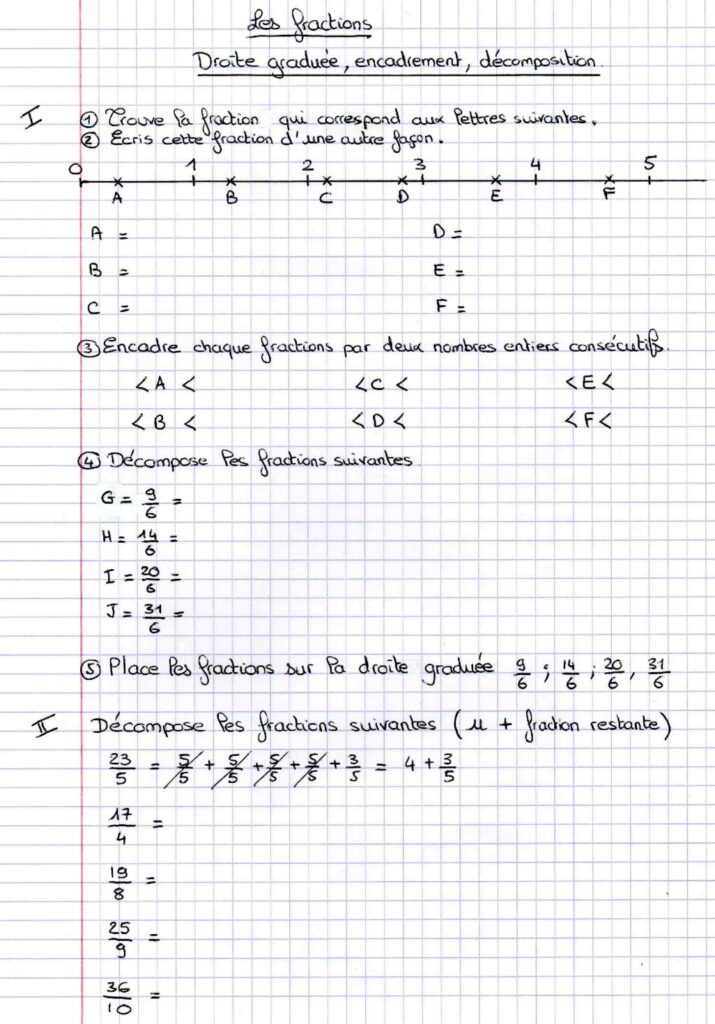 Les fractions
Droite graduée, encadrement, décomposition.
I ① Trouve la fraction qui correspond aux lettres suivantes.
② Ecris cette fraction d'une autre façon.
0 1 2 3 4 5
A B C D E F
A = D =
B = E =
C = F =
③ Encadre chaque fractions par deux nombres entiers consécutifs.
< A < < C < < E <
< B < < D < < F <
④ Décompose les fractions suivantes.
G = 9/6 =
H = 14/6 =
I = 20/6 =
J = 31/6 =
⑤ Place les fractions sur la droite graduée 9/6 ; 14/6 ; 20/6 , 31/6
II Décompose les fractions suivantes (u + fraction restante)
23/5 = 5/5 + 5/5 + 5/5 + 5/5 + 3/5 = 4 + 3/5
17/4 =
19/8 =
25/9 =
36/10 =